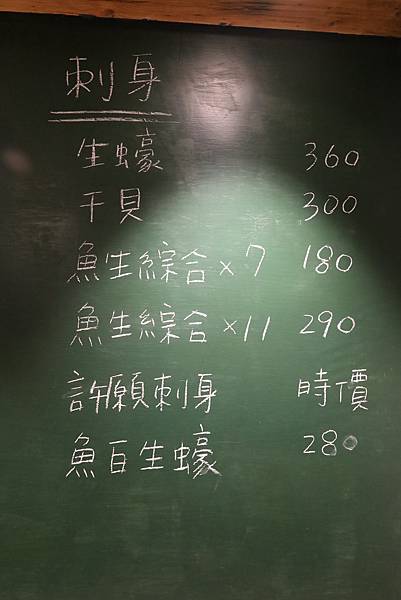 刺身
生蠔 360
干貝 300
魚生綜合×7 180
魚生綜合×11 290
許願刺身 時價
魚百生蠔 280